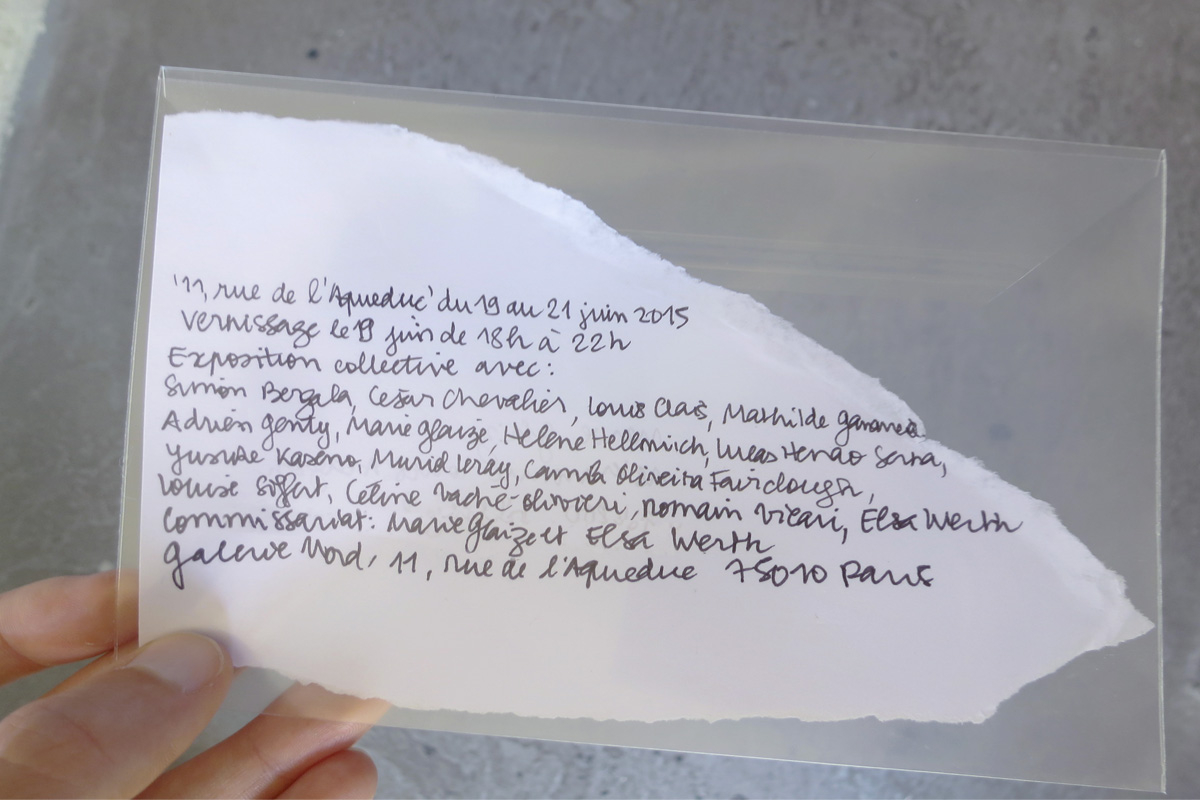 '11, rue de l'Aqueduc' du 19 au 21 juin 2015
Vernissage le 19 juin de 18h à 22h
Exposition collective avec:
Simon Bergala, César Chevalier, Louis Clais, Mathilde
Adrien Genty, Marie Glaize, Hélène Hellmich, Lucas Henao Serna,
Yusuke Kaseno, Muriel Leray, Camila Oliveira Fairclough,
Louise Siffert, Céline Vaché-Olivieri, Romain Vicari, Elsa Werth
Commissariat: Marie Glaize et Elsa Werth
Galerie Nord, 11, rue de l'Aqueduc 75010 Paris